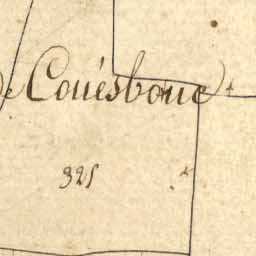 Couësbouc
325